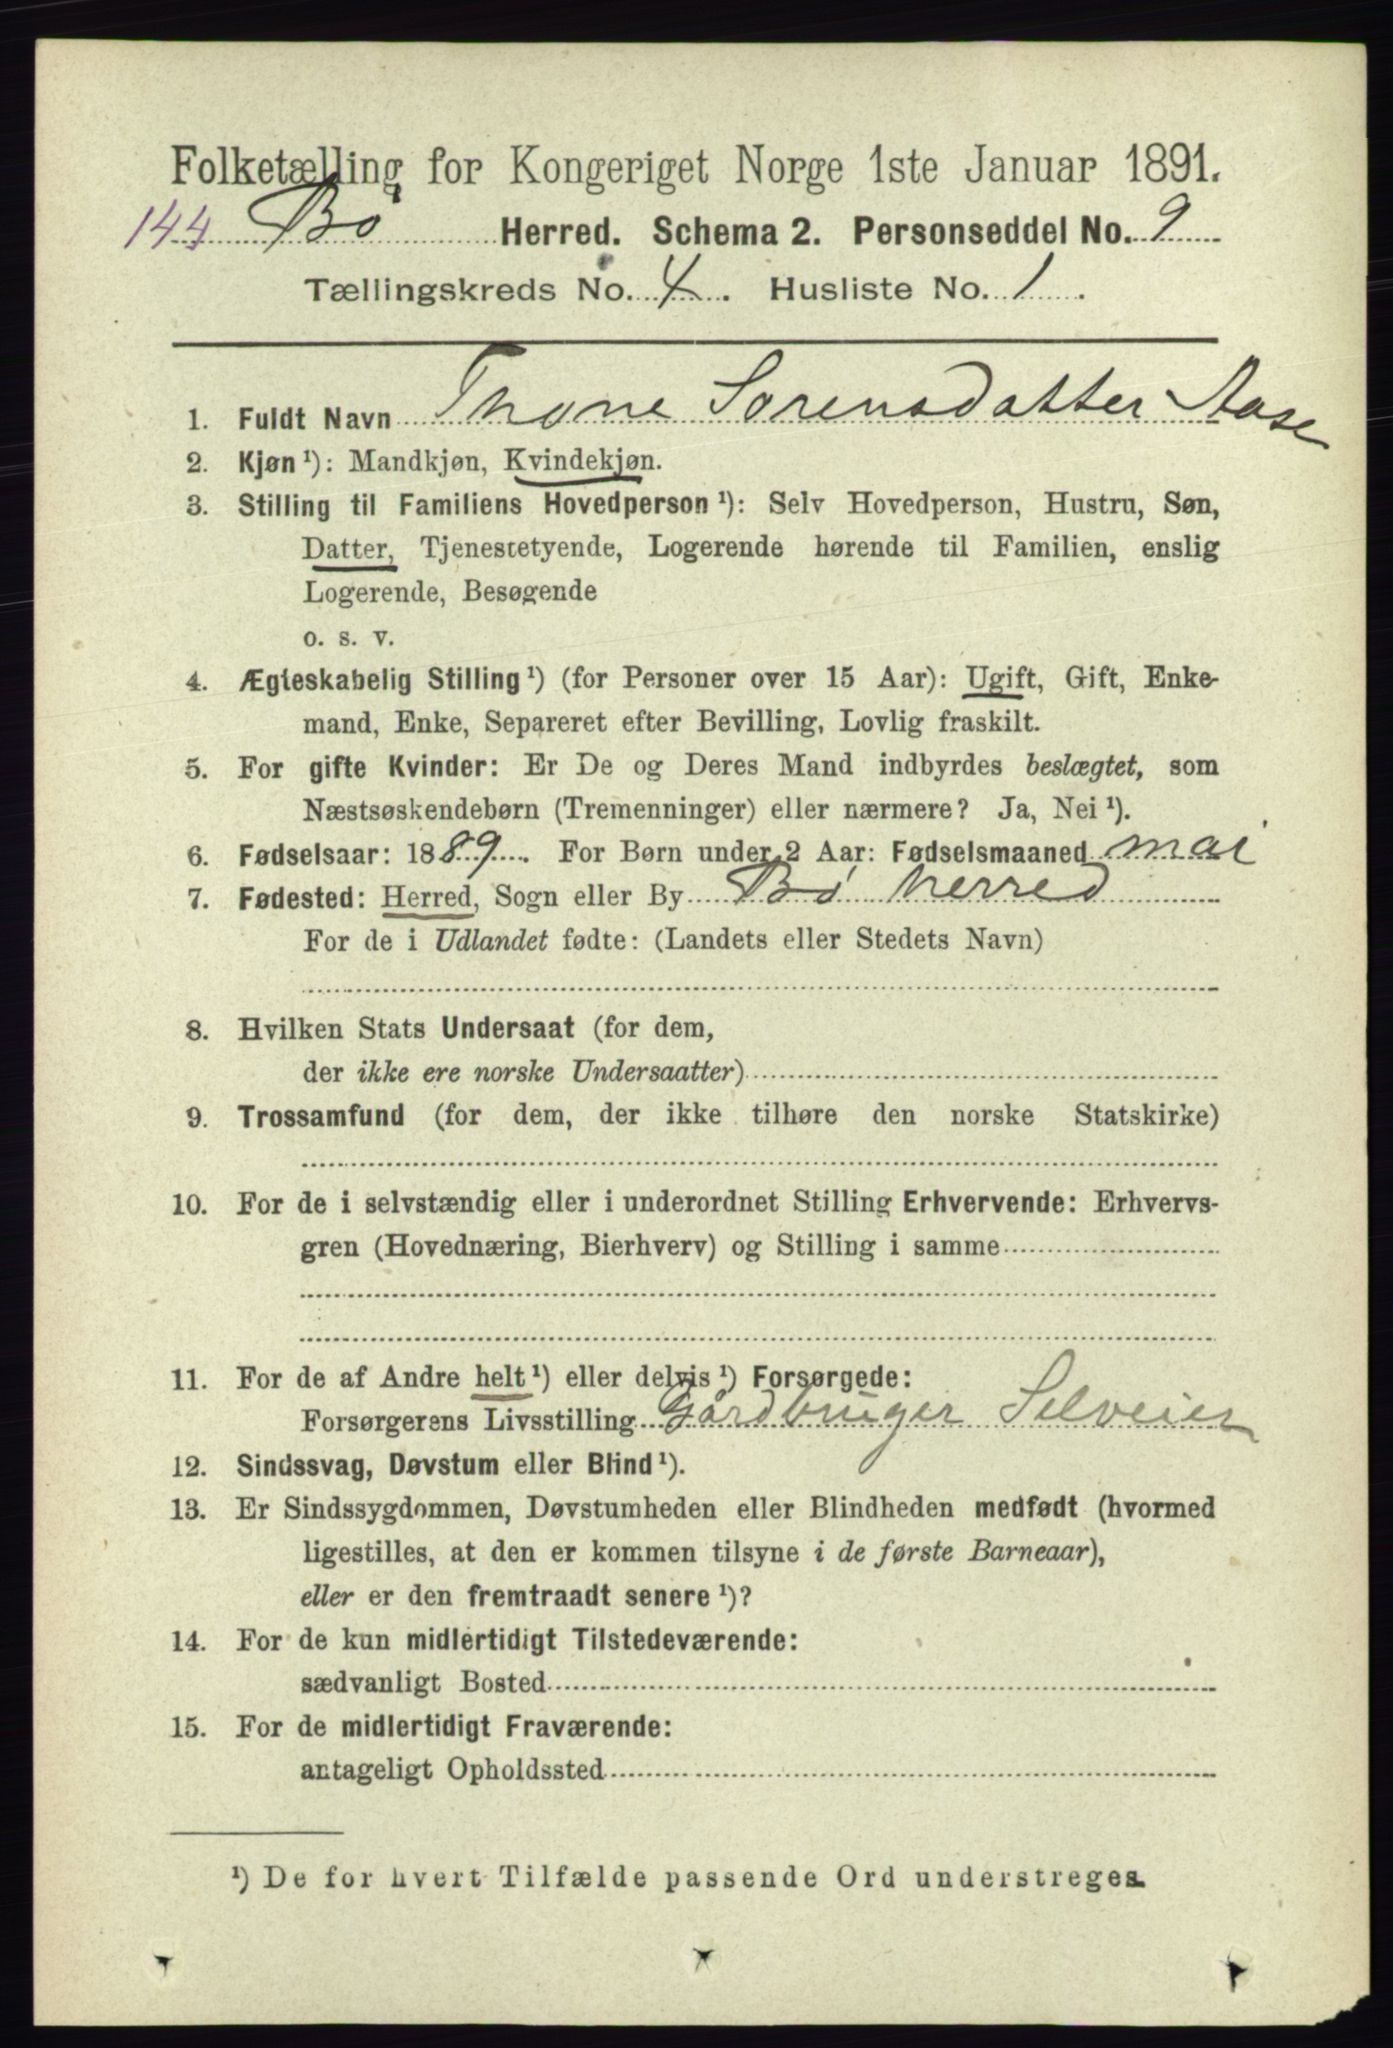 Folketælling for Kongeriget Norge 1ste Januar 1891.
144 Bø Herred. Schema 2. Personseddel No. 9
Tællingskreds No. 4. Husliste No. 1.
1. Fuldt Navn Thone Sorensdatter Aase
2. Kjøn ¹): Mandkjøn, Kvindekjøn.
3. Stilling til Familiens Hovedperson ¹): Selv Hovedperson, Hustru, Søn,
Datter, Tjenestetyende, Logerende hørende til Familien, enslig
Logerende, Besøgende
o. s. v.
4. Ægteskabelig Stilling ¹) (for Personer over 15 Aar): Ugift, Gift, Enke-
mand, Enke, Separeret efter Bevilling, Lovlig fraskilt.
5. For gifte Kvinder: Er De og Deres Mand indbyrdes beslægtet, som
Næstsøskendebørn (Tremenninger) eller nærmere? Ja, Nei ¹).
6. Fødselsaar: 1889. For Børn under 2 Aar: Fødselsmaaned mai
7. Fødested: Herred, Sogn eller By Bø herred
For de i Udlandet fødte: (Landets eller Stedets Navn)
8. Hvilken Stats Undersaat (for dem,
der ikke ere norske Undersaatter)
9. Trossamfund (for dem, der ikke tilhøre den norske Statskirke)
10. For de i selvstændig eller i underordnet Stilling Erhvervende: Erhvervs-
gren (Hovednæring, Bierhverv) og Stilling i samme
11. For de af Andre helt ¹) eller delvis ¹) Forsørgede:
Forsørgerens Livsstilling Gårdbruger Selveier
12. Sindssvag, Døvstum eller Blind ¹).
13. Er Sindssygdommen, Døvstumheden eller Blindheden medfødt (hvormed
ligestilles, at den er kommen tilsyne i de første Barneaar),
eller er den fremtraadt senere ¹)?
14. For de kun midlertidigt Tilstedeværende:
sædvanligt Bosted
15. For de midlertidigt Fraværende:
antageligt Opholdssted
¹) De for hvert Tilfælde passende Ord understreges.